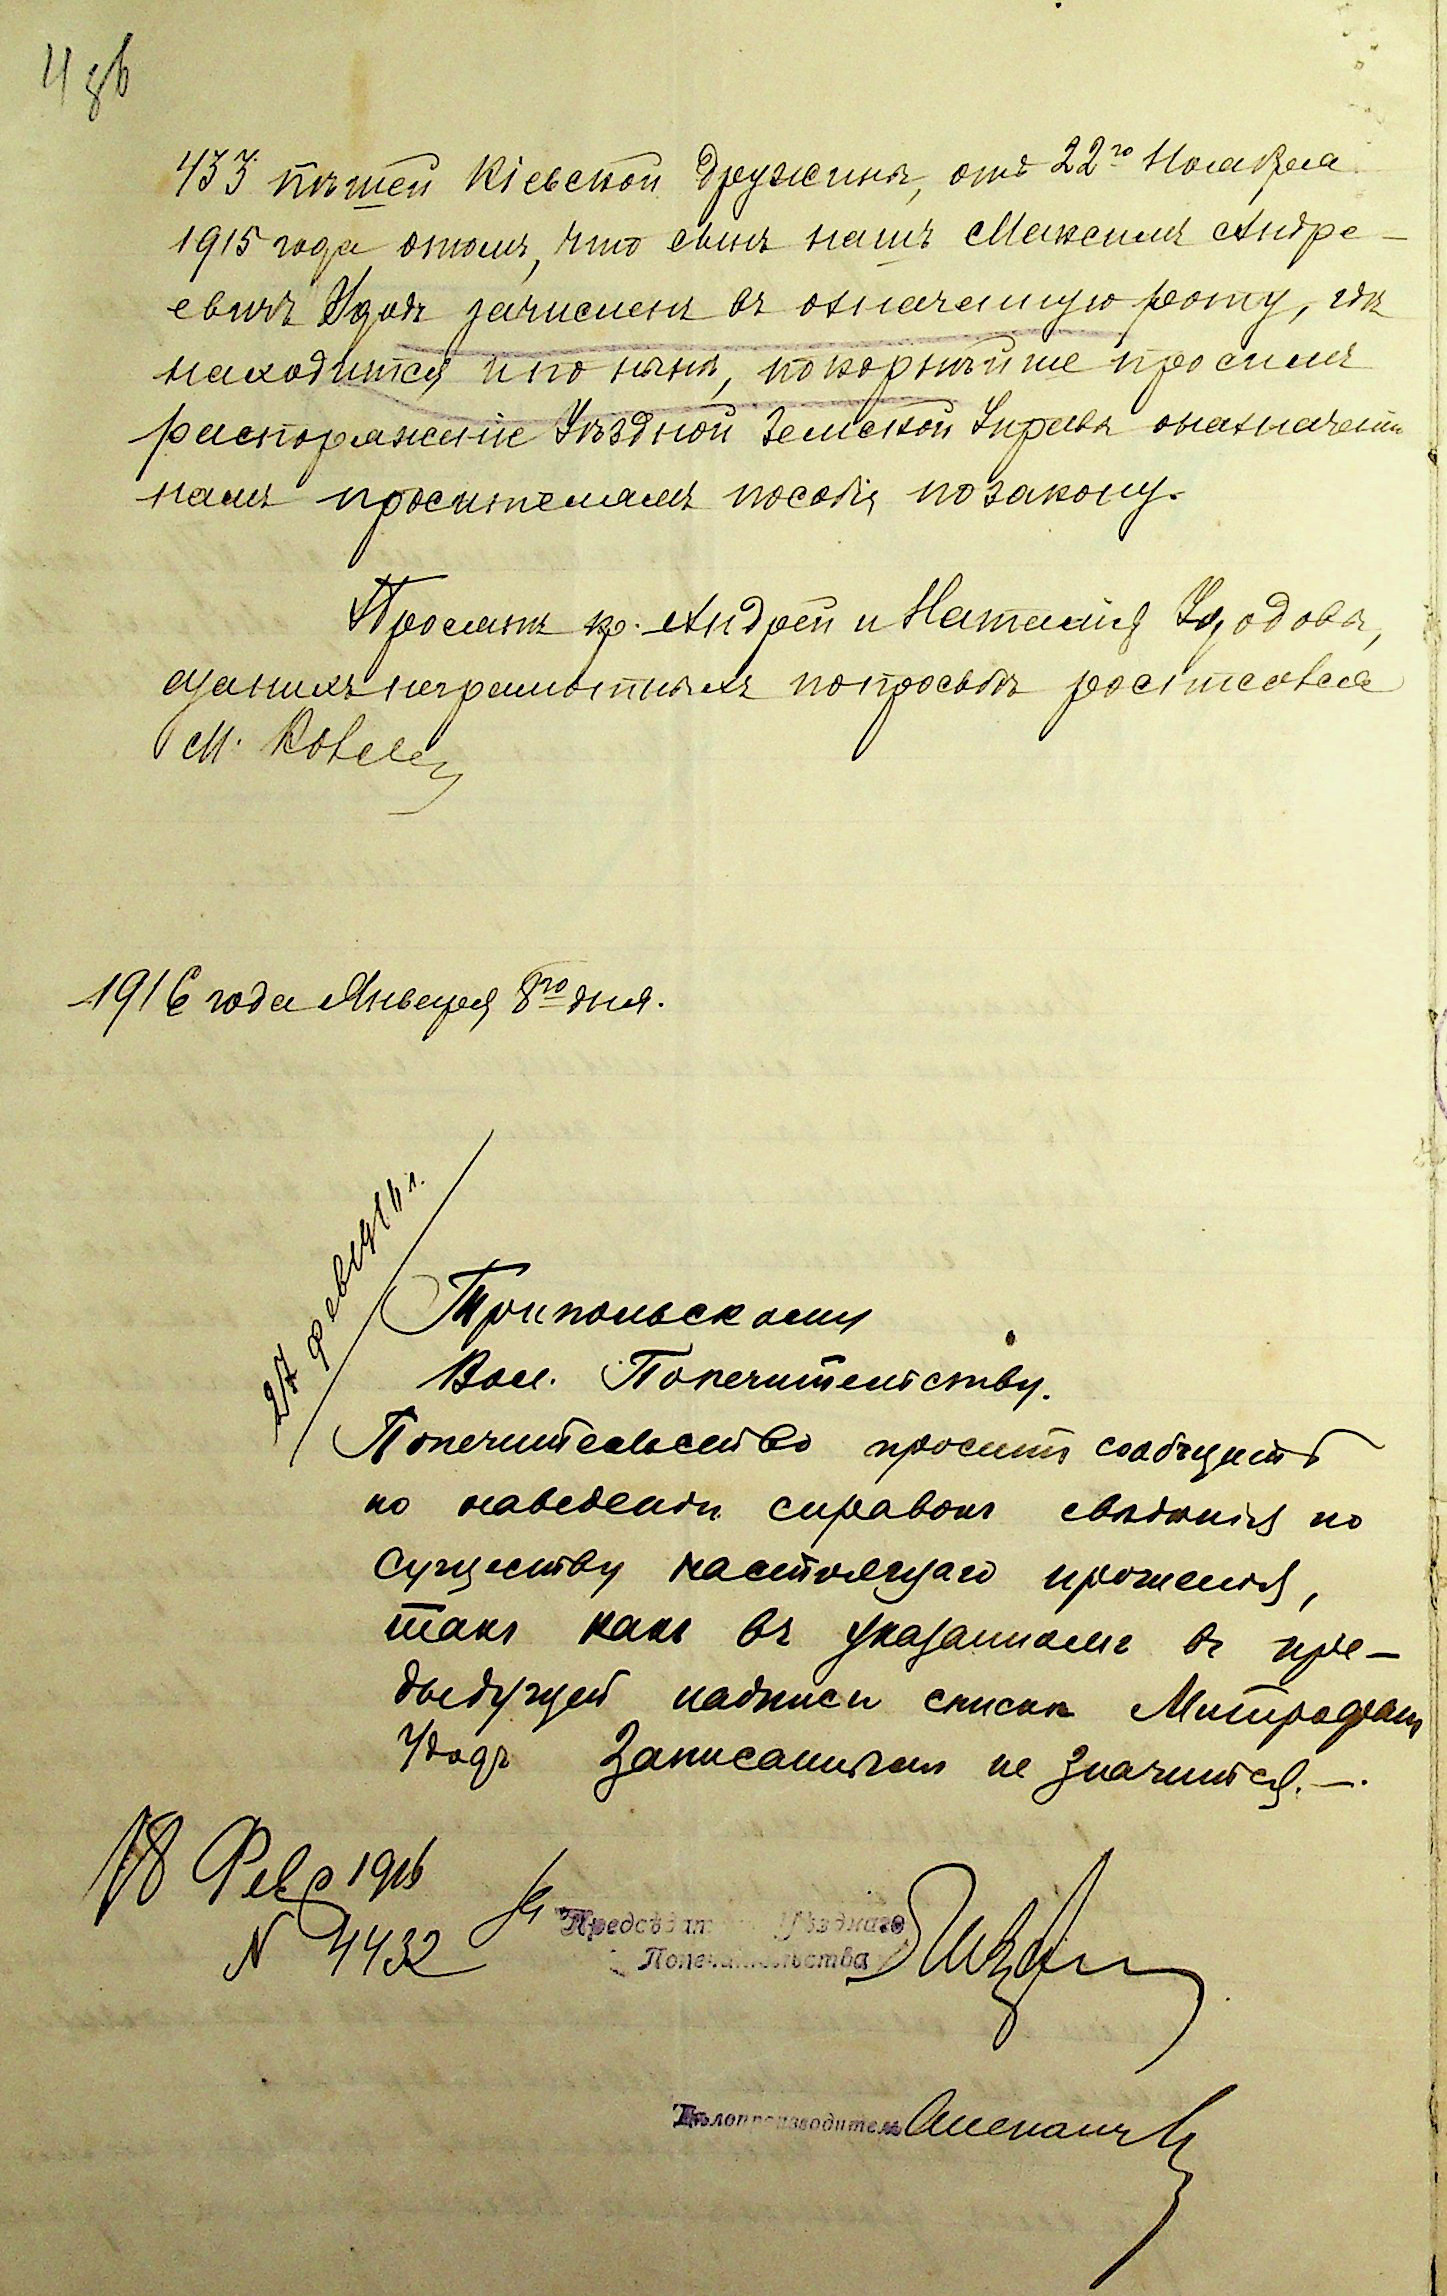 4 зв
433 пѣшей Кіевской дружины, отъ 22го Ноября
1915 года отомъ, что сынъ нашъ Максимъ Андре-
евичъ Удодъ зачисленъ въ означенную роту, гдѣ
находится и по нынѣ, покорнѣйше просимъ
распоряженіе Уѣздной Земской Управы оназначеніи
намъ просителямъ пособія позакону.
Просятъ кр. Андрей и Наталія Удодовы,
азанихъ неграмотныхъ попросьбѣ росписався
М.
1916 года Января 8го дня.
27 февр 1916 г.
Трипольскому
Вол. Попечительству.
Попечительство проситъ сообщить
по наведеніи справокъ свѣдѣнія по
существу настоящаго прошенія,
такъ какъ въ указанномъ въ пре-
дыдущей надписи спискѣ Митрофанъ
Удодъ записаннымъ не значится.—.
18 Февр 1916
N 4432
За Предсѣдателя Уѣзднаго
Попечительства
Дѣлопроизводитель